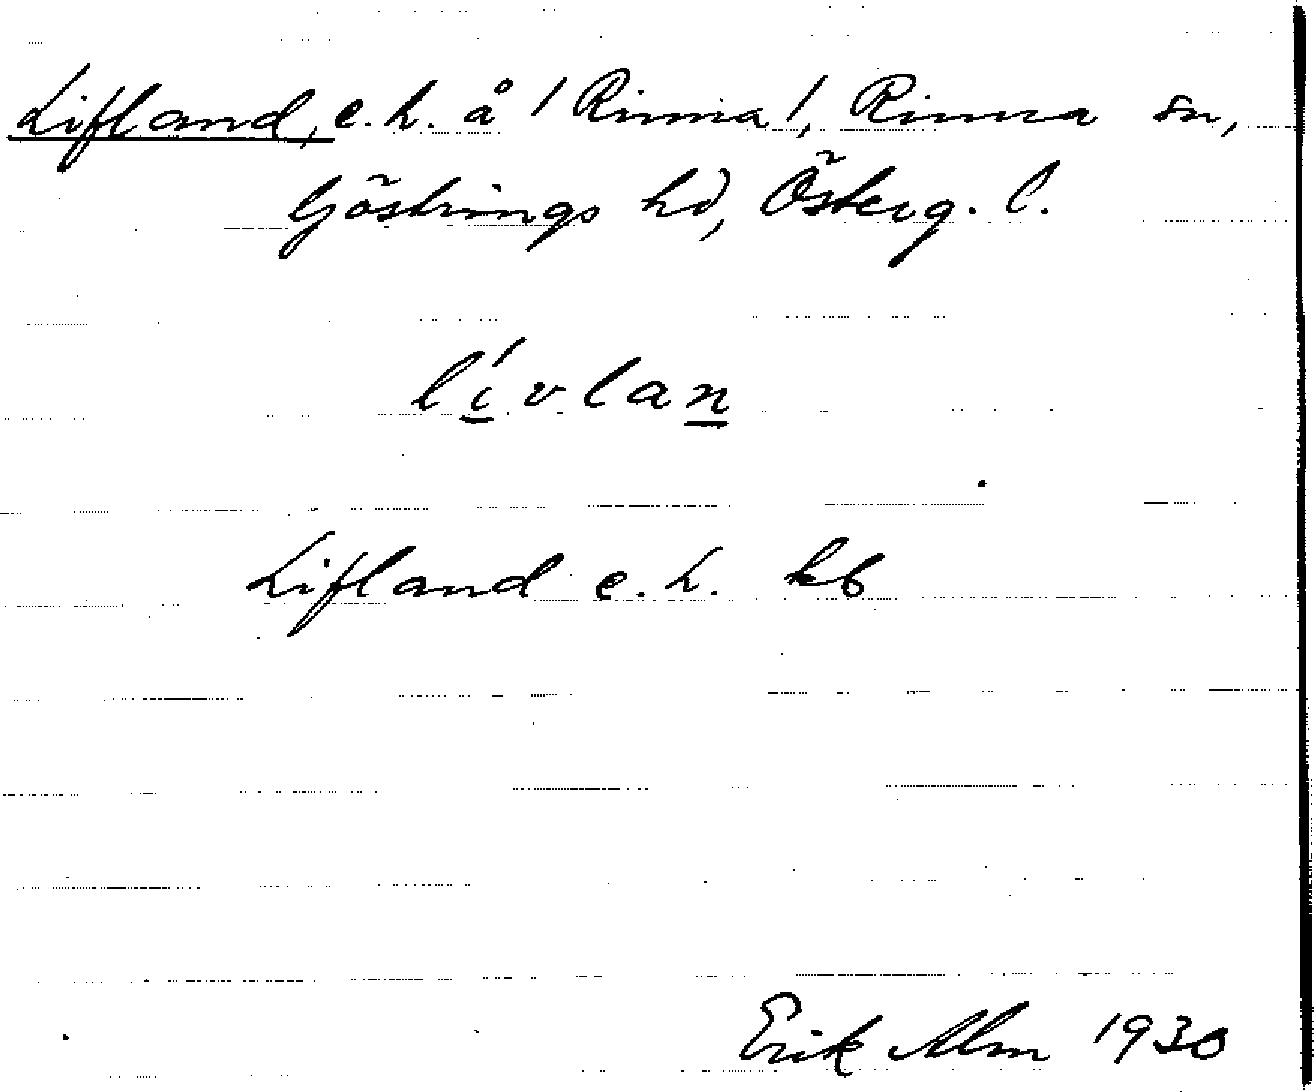 Lifland, e.h. å /Rinna/, Rinna sn,
Göstrings hd, Österg. l.
lívlan
Lifland e.h. kb
Erik Alm 1930